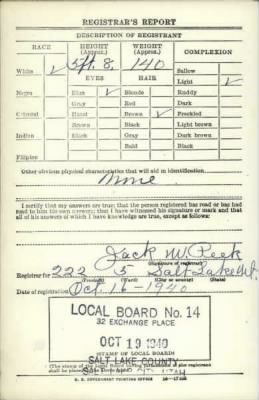 REGISTRAR'S REPORT
DESCRIPTION OF REGISTRANT
RACE HEIGHT (Approx.) WEIGHT (Approx.) COMPLEXION
5ft. 8. 140
White ✓ Sallow
EYES HAIR Light ✓
Negro Blue ✓ Blonde Ruddy
Gray Red Dark
Oriental Hazel Brown ✓ Freckled
Brown Black Light brown
Indian Black Gray Dark brown
Bald Black
Filipino
Other obvious physical characteristics that will aid in identification
None
I certify that my answers are true; that the person registered has read or has had
read to him his own answers; that I have witnessed his signature or mark and that
all of his answers of which I have knowledge are true, except as follows:
Jack W. Peek
(Signature of registrar)
Registrar for 222 5 Salt Lake Ut.
(Precinct) (Ward) (State)
Date of registration Oct. 16 - 1940
LOCAL BOARD No. 14
32 EXCHANGE PLACE
OCT 19 1940
(STAMP OF LOCAL BOARD)
SALT LAKE COUNTY
U. S. GOVERNMENT PRINTING OFFICE 16-17105